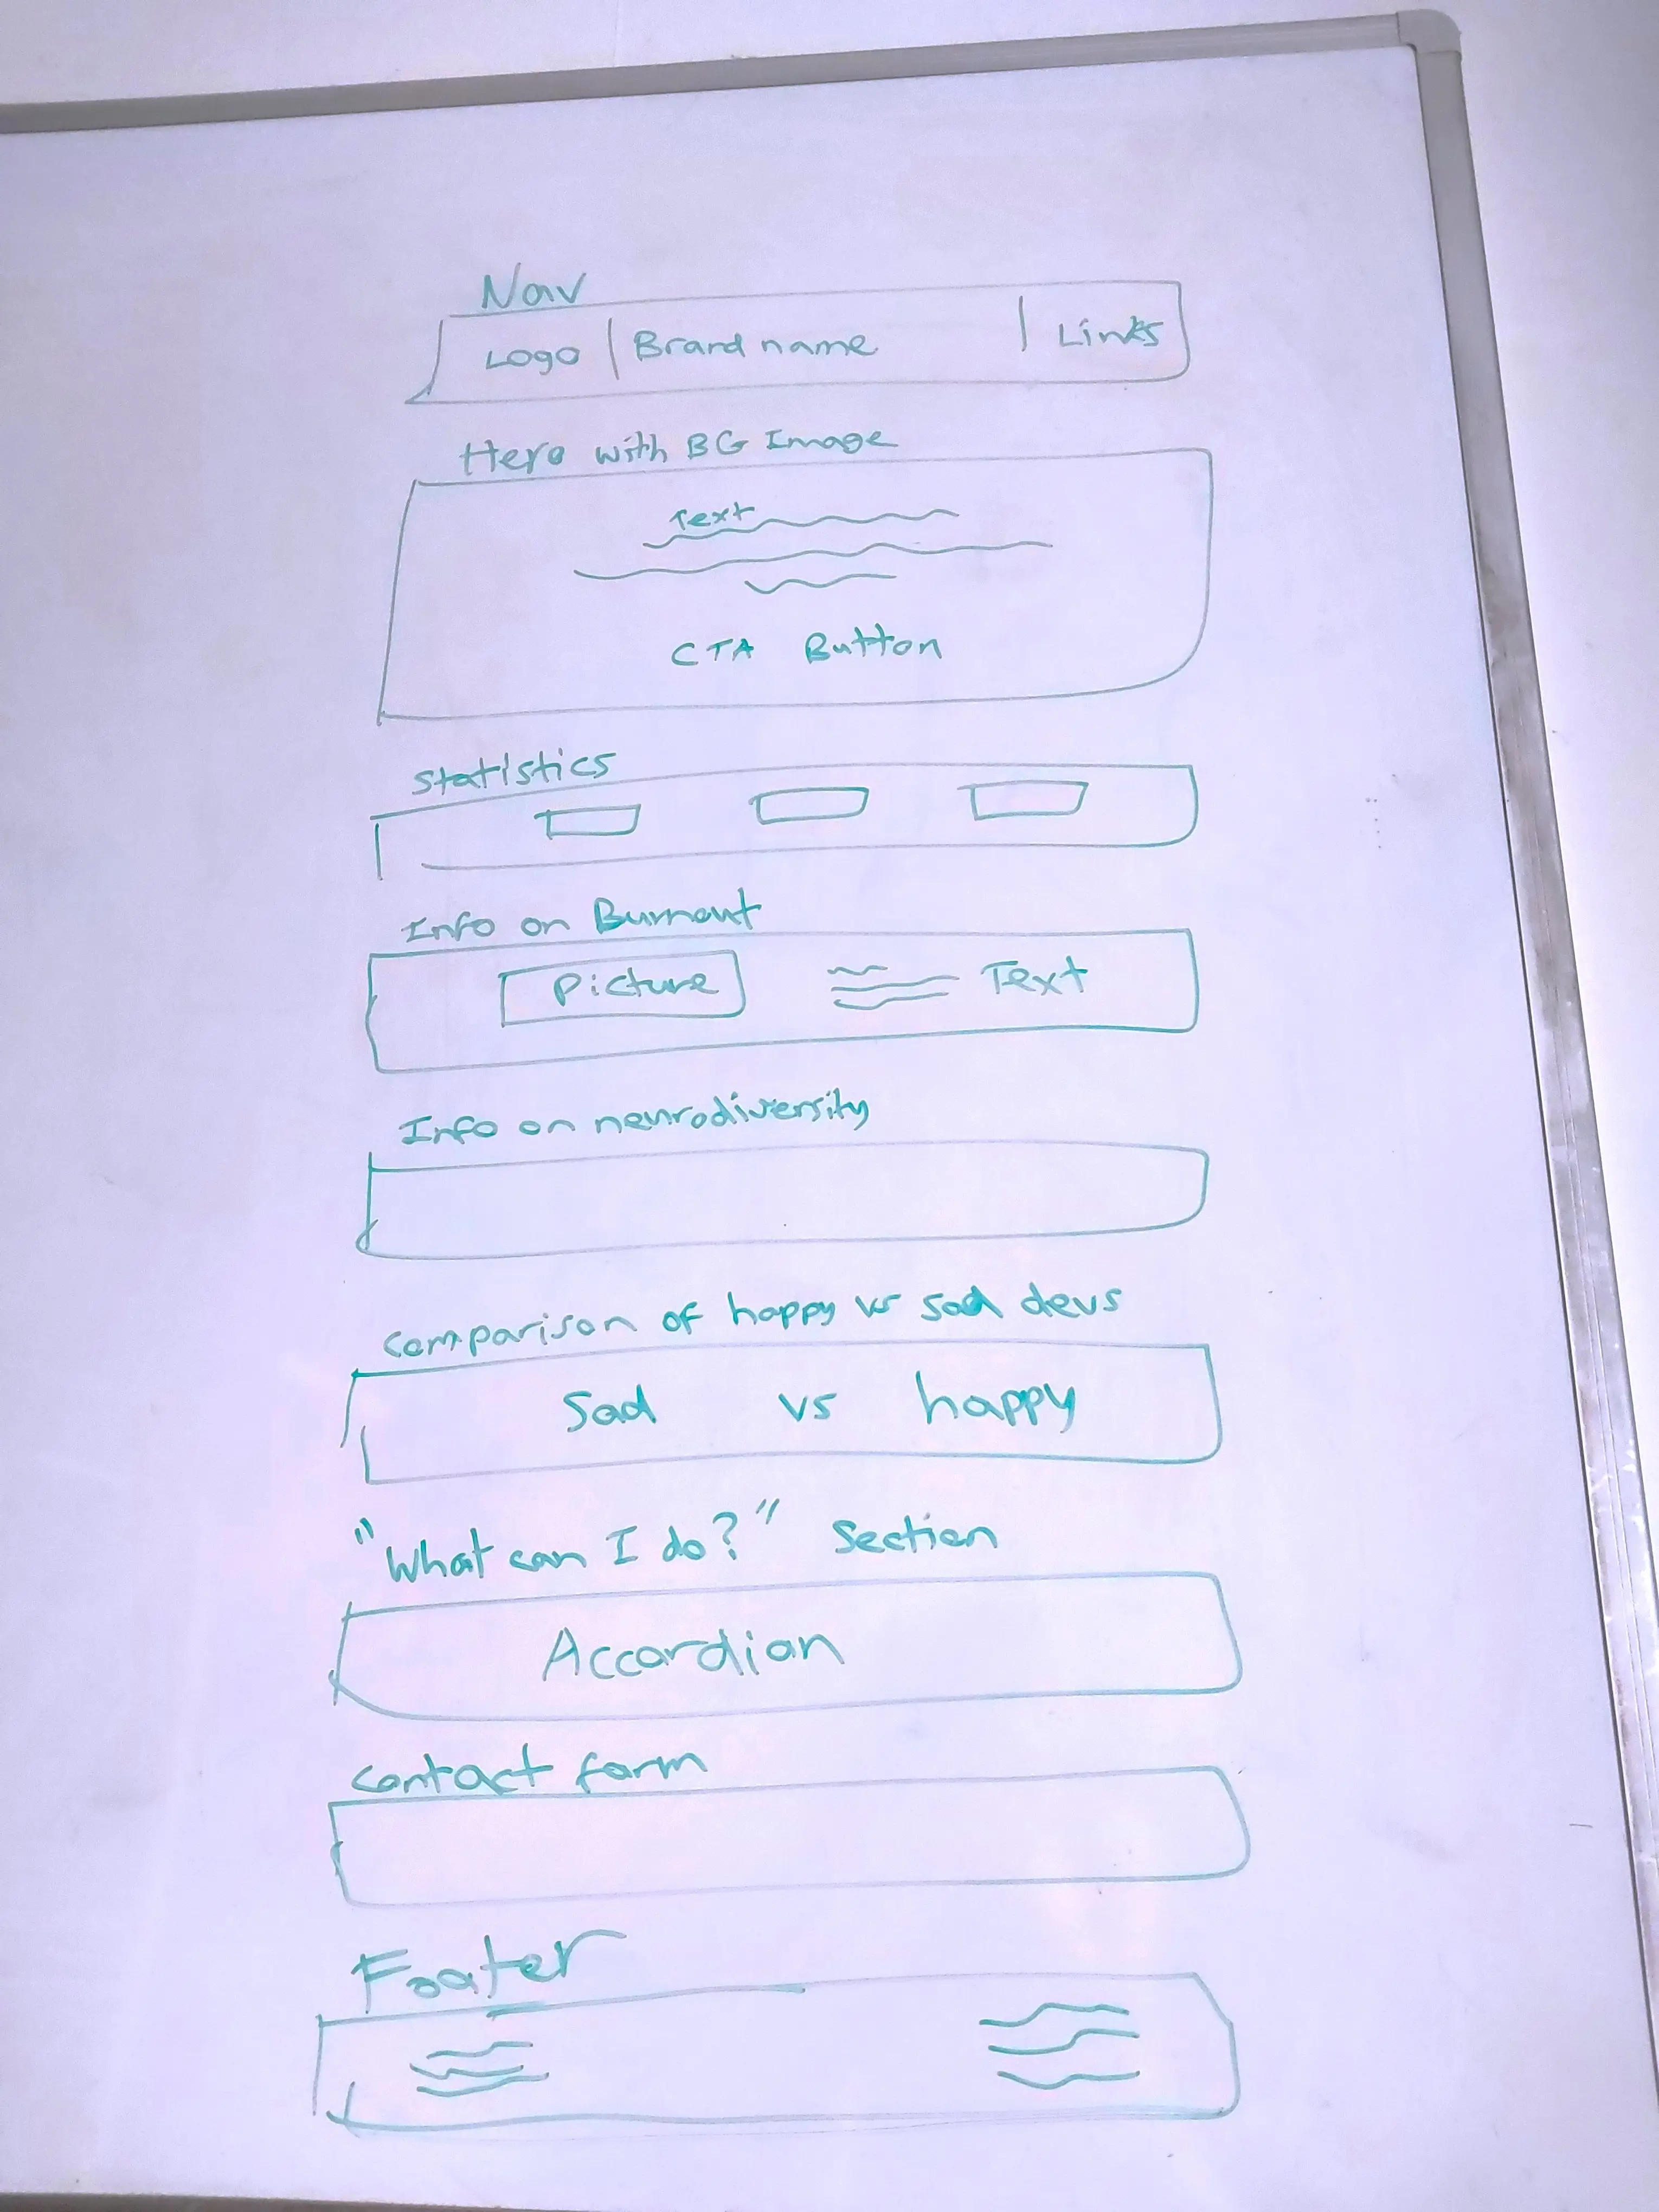 Nav
Logo | Brand name | Links
Hero with BG Image
Text
CTA Button
Statistics
Info on Burnout
Picture
Text
Info on neurodiversity
comparison of happy vs sad devs
Sad vs happy
"What can I do?" Section
Accordian
contact form
Footer